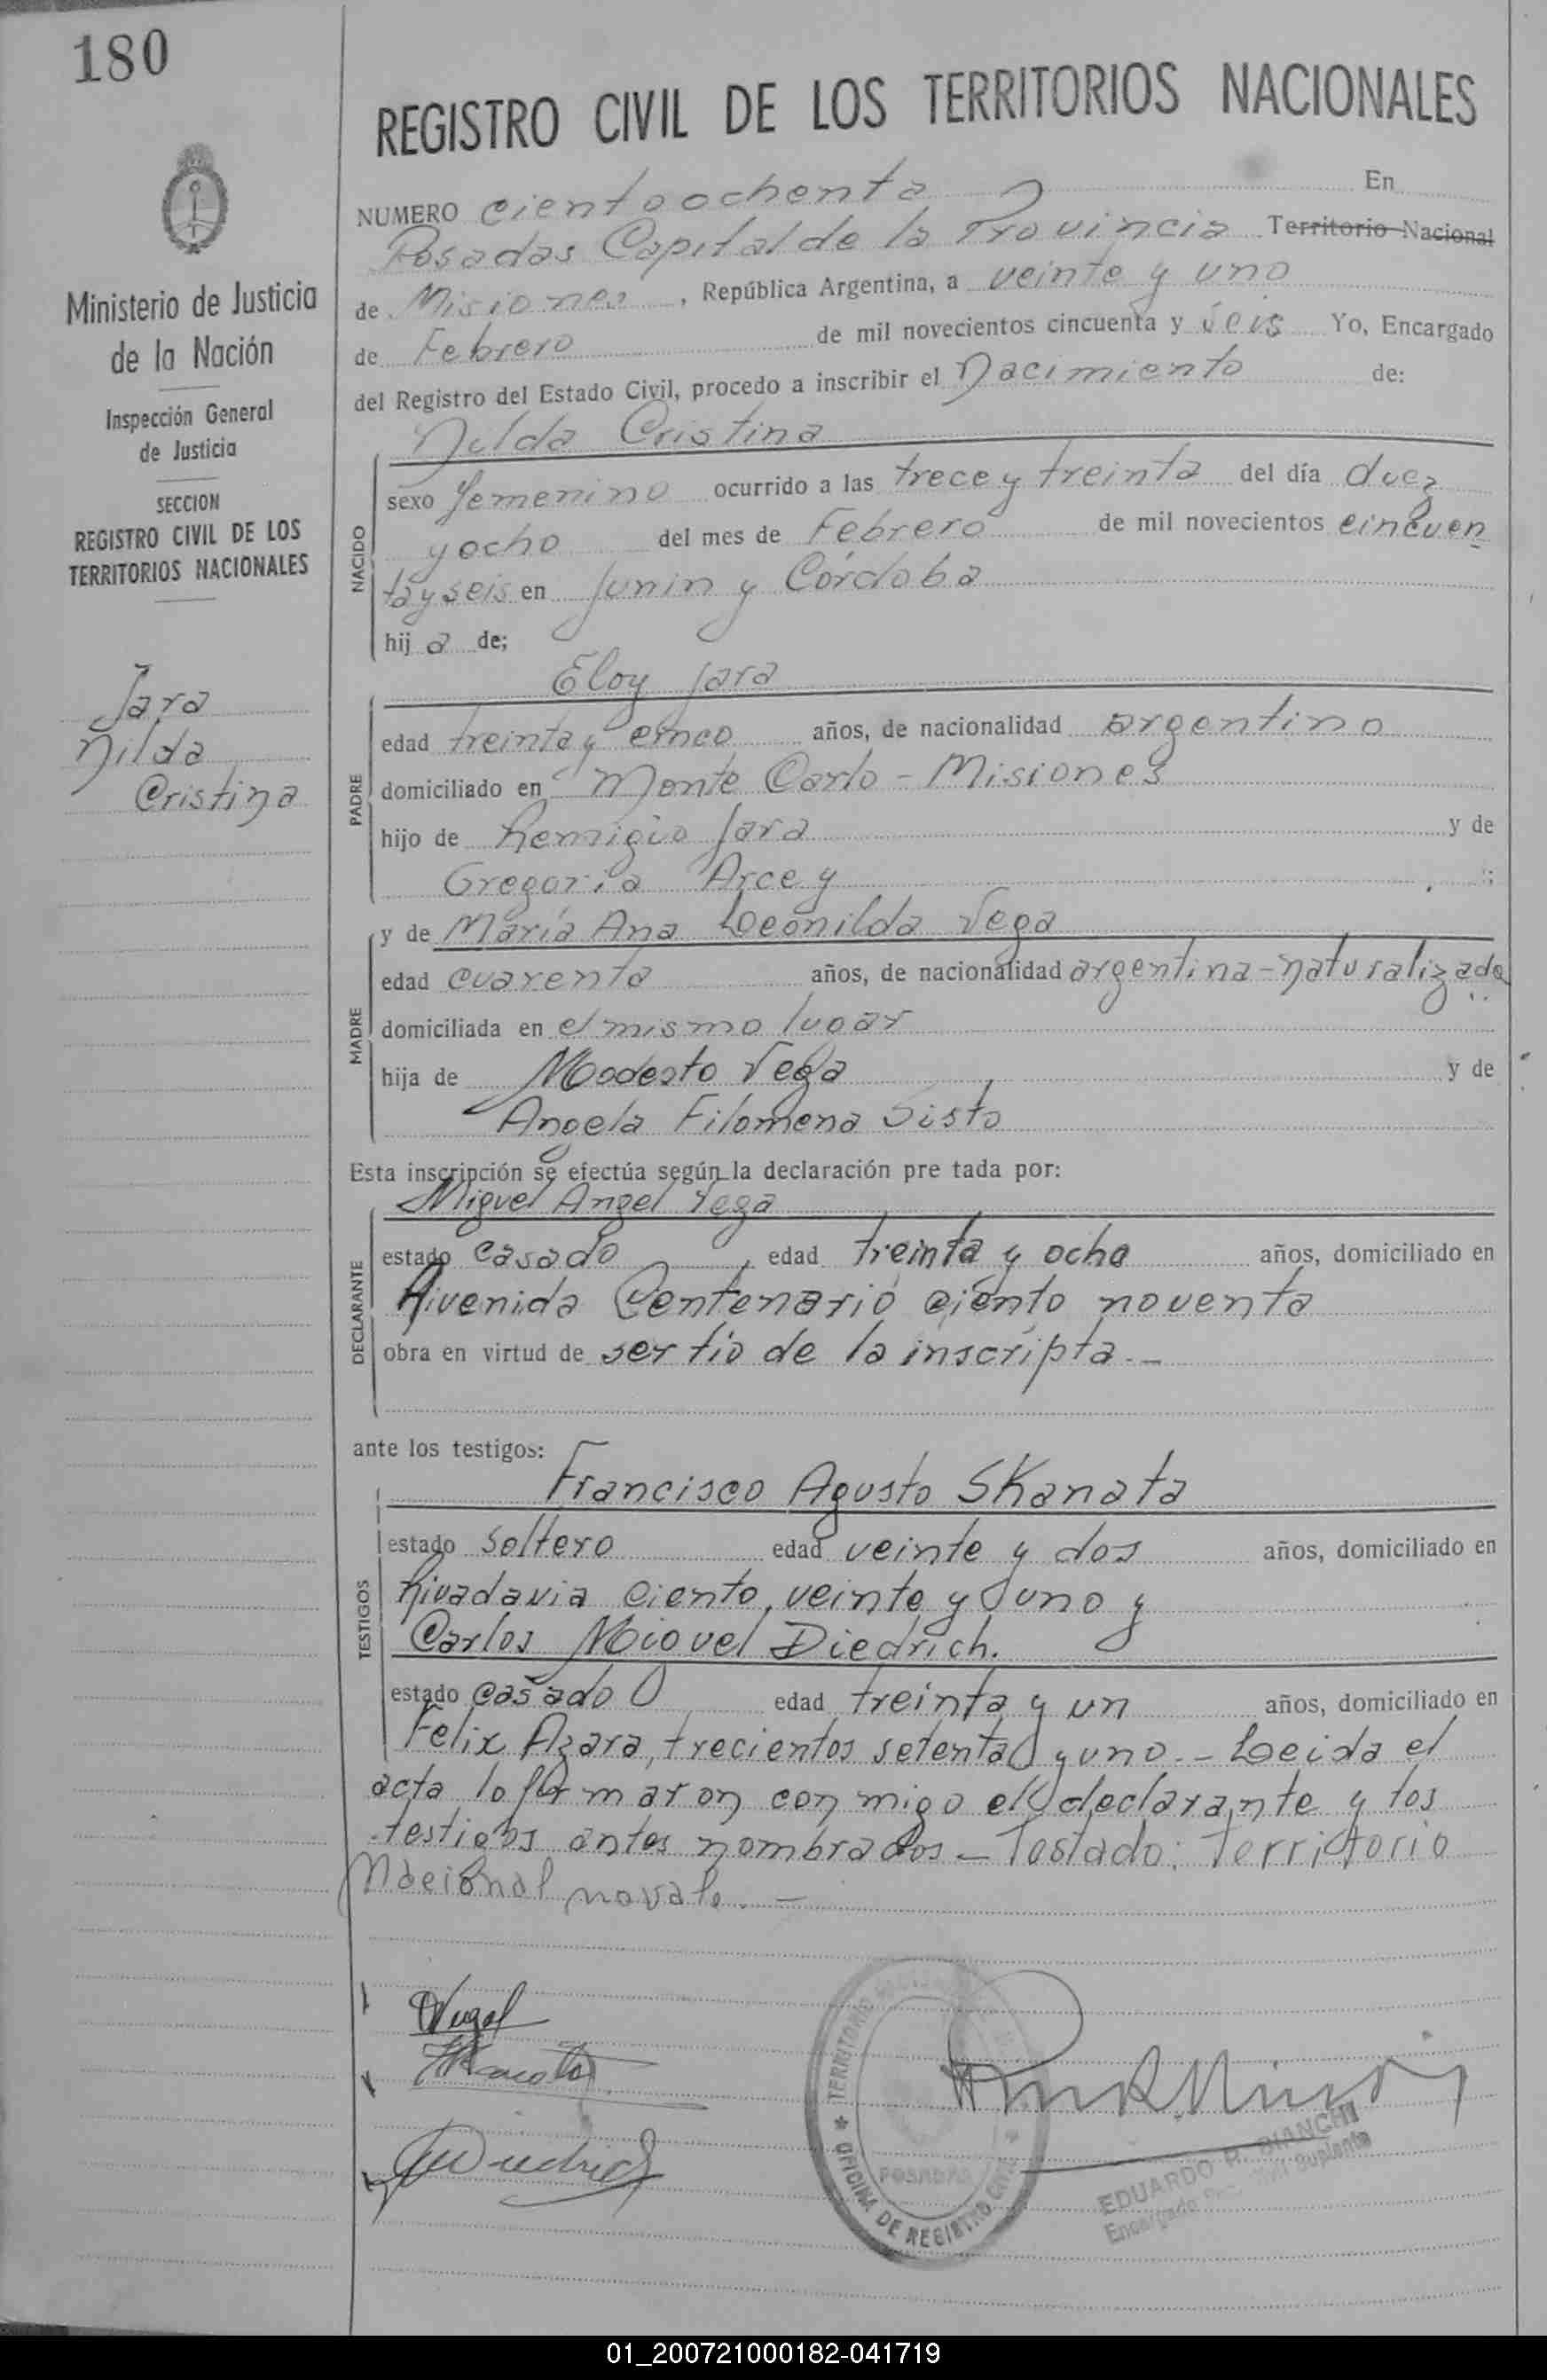 180
REGISTRO CIVIL DE LOS TERRITORIOS NACIONALES
NUMERO cientoochenta En
Posadas Capital de la Provincia Territorio Nacional
de Misiones, República Argentina, a veinte y uno
de Febrero de mil novecientos cincuenta y seis Yo, Encargado
del Registro del Estado Civil, procedo a inscribir el nacimiento de:
Nilda Cristina
Ministerio de Justicia
de la Nación
Inspección General
de Justicia
SECCION
REGISTRO CIVIL DE LOS
TERRITORIOS NACIONALES
Jara
Nilda
Cristina
NACIDO
sexo femenino ocurrido a las trece y treinta del día diez
y ocho del mes de Febrero de mil novecientos cincuen
ta y seis en Junin y Córdoba
hij a de;
Eloy Jara
PADRE
edad treinta y cinco años, de nacionalidad argentino
domiciliado en Monte Carlo - Misiones
hijo de Remigio Jara y de
Gregoria Arce y ;
MADRE
y de María Ana Leonilda Vega
edad cuarenta años, de nacionalidad argentina-naturalizada
domiciliada en el mismo lugar
hija de Modesto Vega y de
Angela Filomena Sisto
Esta inscripción se efectúa según la declaración pre tada por:
Miguel Angel Vega
DECLARANTE
estado casado, edad treinta y ocho años, domiciliado en
Avenida Centenario ciento noventa
obra en virtud de ser tío de la inscripta.-
ante los testigos:
Francisco Agusto Skanata
TESTIGOS
estado soltero edad veinte y dos años, domiciliado en
Rivadavia ciento veinte y uno y
Carlos Miguel Diedrich.
estado casado edad treinta y un años, domiciliado en
Felix Azara, trecientos setenta y uno.- Leida el
acta lo firmaron con migo el declarante y los
testigos antes nombrados - Testado: Territorio
Nacional no vale. -
TERRITORIO
POSADAS
OFICINA DE REGISTRO CIVIL
EDUARDO R. BIANCHI
Encargado Suplente
01_200721000182-041719